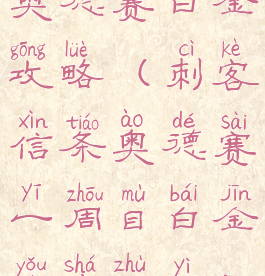 奥德赛白金
gōng lüè cì kè
攻略(刺客
xìn tiáo ào dé sài
信条奥德赛
yī zhōu mù bái jīn
一周目白金
yǒu shá zhù yì